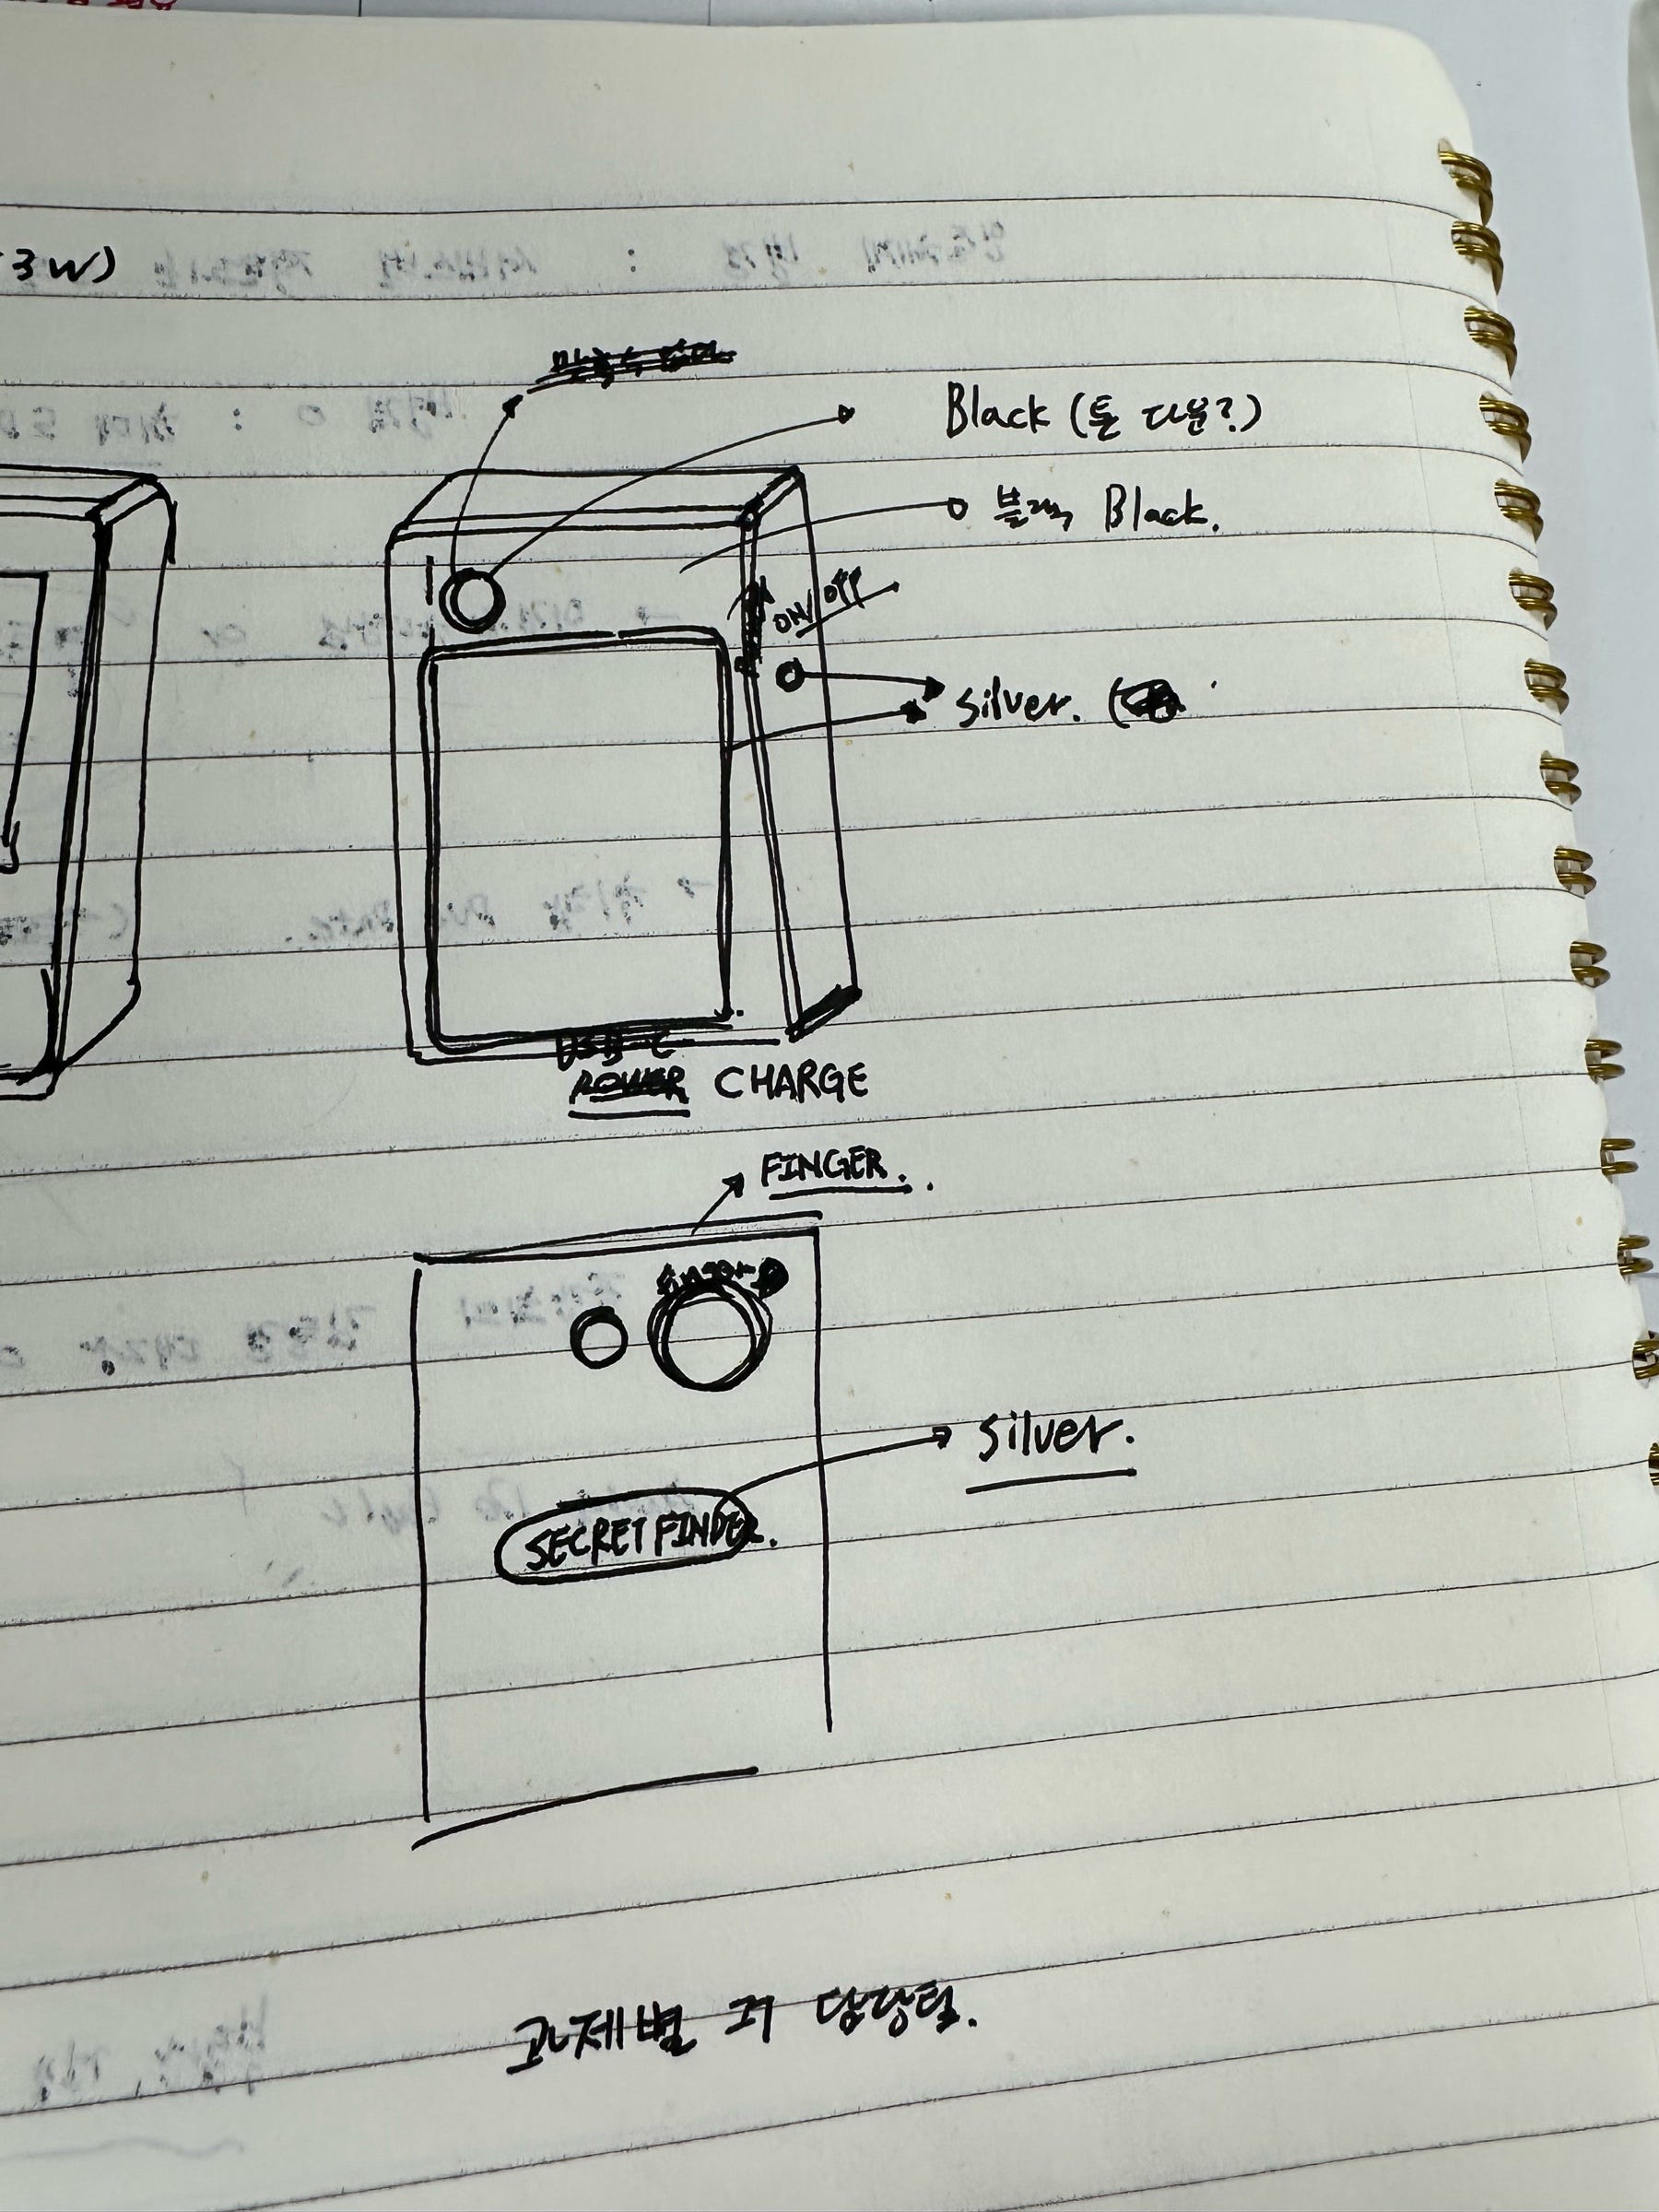 3W)
Black (톤 다운?)
블랙 Black.
ON/OFF
Silver. (
USB-C
POWER CHARGE
FINGER.
finger
Silver.
SECRET FINDER.
과제별 담당팀.